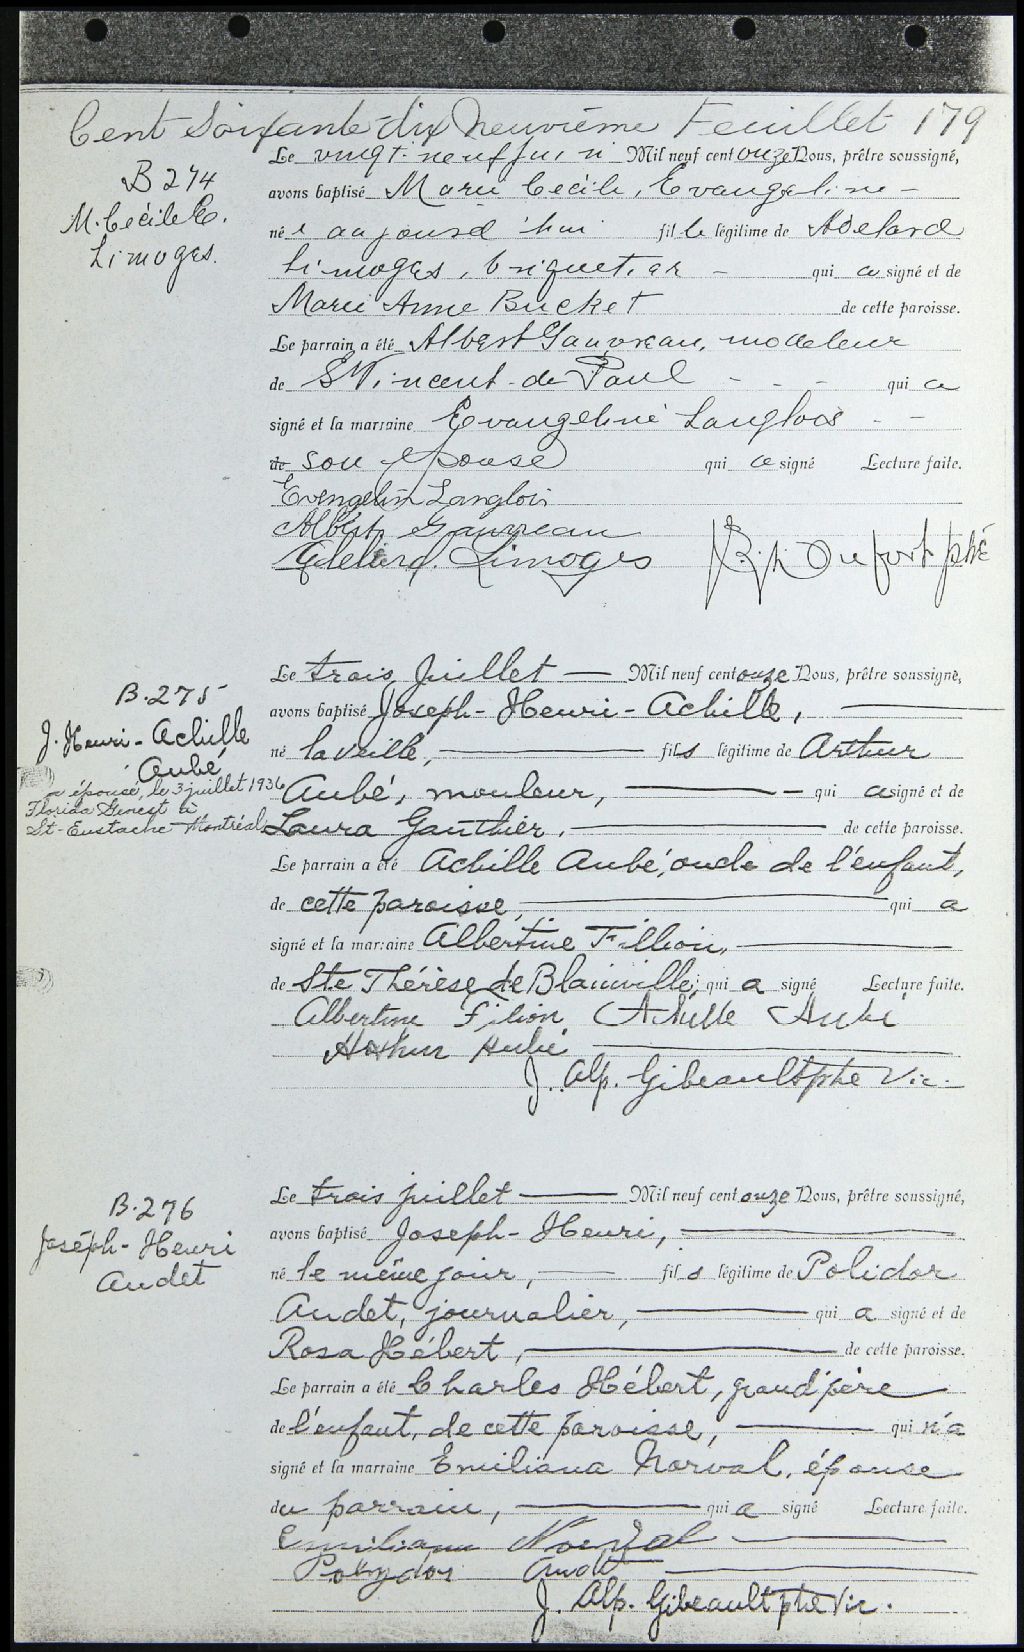 Cent Soixante-dix Neuvième Feuillet 179
B 274
M. Cécile E.
Limoges.
Le vingt-neuf juin Mil neuf cent onze Nous, prêtre soussigné,
avons baptisé Marie Cécile, Evangeline -
née aujourd'hui fille légitime de Adelard
Limoges, briquetier - qui a signé et de
Marie Anne Bucket de cette paroisse.
Le parrain a été Albert Gauvreau, modeleur
de St Vincent-de-Paul - - - qui a
signé et la marraine Evangeline Langlois - -
de son épouse qui a signé Lecture faite.
Evengelin Langlois
Albert Gauvreau
Adelard. Limoges Dufort ptre
B. 275
J. Henri-Achille
Aubé
a épousé, le 3 juillet 1936
Florida Genest à
St-Eustache-Montréal
Le trois Juillet — Mil neuf cent onze Nous, prêtre soussigné,
avons baptisé Joseph-Henri-Achille, —
né la veille, — fils légitime de Arthur
Aubé, mouleur, — qui a signé et de
Laura Gauthier, — de cette paroisse.
Le parrain a été Achille Aubé, oncle de l'enfant,
de cette paroisse, — qui a
signé et la marraine Albertine Fillion, —
de Ste Thérèse de Blainville, qui a signé Lecture faite.
Albertine Filion Achille Aubé
Arthur Aubé —
J. Alp. Gibeault ptre Vic.
B. 276
Joseph-Henri
Audet
Le trois juillet — Mil neuf cent onze Nous, prêtre soussigné,
avons baptisé Joseph-Henri, —
né le même jour, — fils légitime de Polidor
Audet, journalier, — qui a signé et de
Rosa Hébert, — de cette paroisse.
Le parrain a été Charles Hébert, grand'père
de l'enfant, de cette paroisse, — qui n'a
signé et la marraine Emiliana Norval, épouse
du parrain, — qui a signé Lecture faite.
Emiliana Norval —
Polydor Audet —
J. Alp. Gibeault ptre Vic.